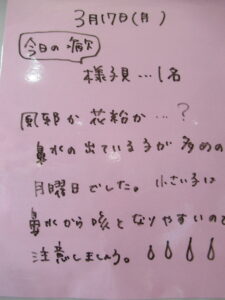 3月17日(月)
今日の病欠
様子見…1名
風邪か花粉か…?
鼻水の出ている子が多めの
月曜日でした。小さい子は
鼻水から咳となりやすいので
注意しましょう。